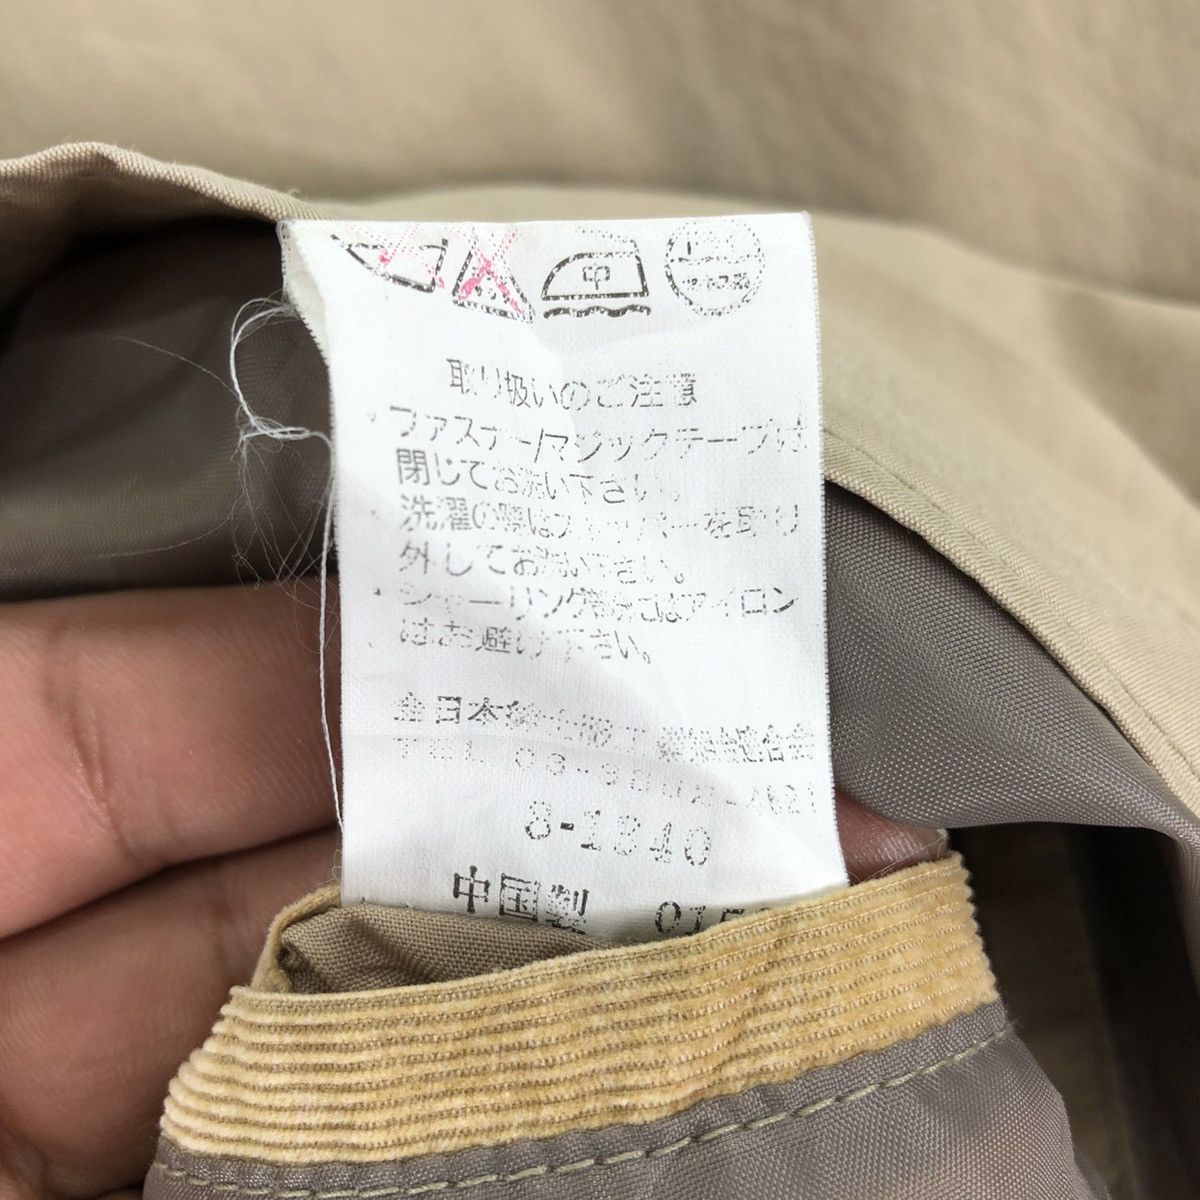 中
取り扱いのご注意
・ファスナー/マジックテープは
閉じてお洗い下さい。
洗濯の際はストッパーを取り
外してお洗い下さい。
・シャーリング部分にはアイロン
はお避け下さい。
全日本
TEL
8-1340
中国製